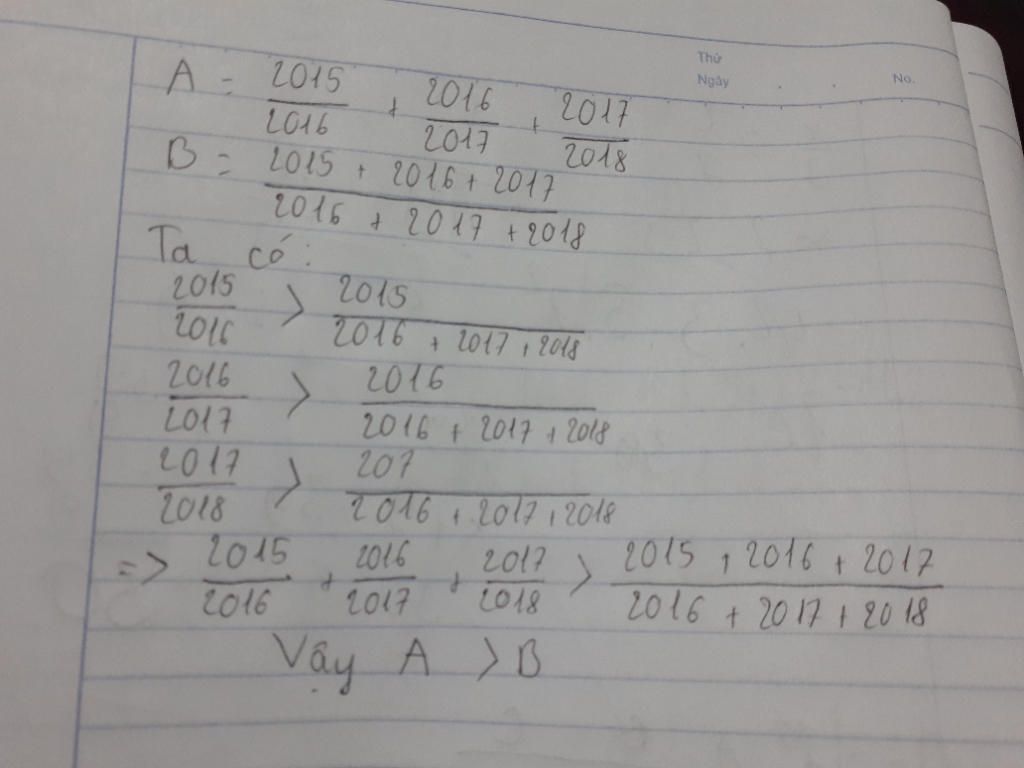 Thứ
Ngày No.
A = 2015/2016 + 2016/2017 + 2017/2018
B = (2015 + 2016 + 2017)/(2016 + 2017 + 2018)
Ta có:
2015/2016 > 2015/(2016 + 2017 + 2018)
2016/2017 > 2016/(2016 + 2017 + 2018)
2017/2018 > 207/(2016 + 2017 + 2018)
=> 2015/2016 + 2016/2017 + 2017/2018 > (2015 + 2016 + 2017)/(2016 + 2017 + 2018)
Vậy A > B